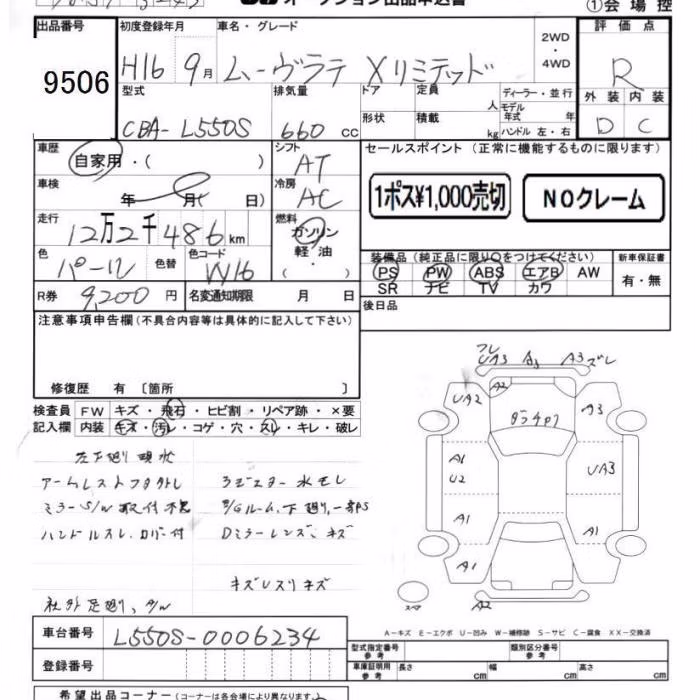 オークション出品申込書
①会場控
出品番号
9506
初度登録年月
H16 9月
車名・グレード
ムーヴラテ Xリミテッド
2WD
・
4WD
評価点
R
外装 内装
D C
型式
CBA-L550S
排気量
660 cc
ドア
定員
人
形状
積載
kg
ディーラー・並行
モデル年式 年
ハンドル 左・右
車歴
自家用・( )
シフト
AT
セールスポイント (正常に機能するものに限ります)
1ポス¥1,000売切
NOクレーム
車検
年 月( 日)
冷房
AC
走行
12万2千486km
燃料
ガソリン
軽油
・( )
色
パール
色替
色コード
W16
装備品(純正品に限り○をつけてください)
PS PW ABS エアB AW
SR ナビ TV カワ
新車保証書
有・無
R券
9,200円
名変通知期限 月 日
後日品
注意事項申告欄(不具合内容等は具体的に記入して下さい)
修復歴 有 〔箇所 〕
検査員記入欄
FW キズ・飛石・ヒビ割・リペア跡・×要
内装 キズ・汚レ・コゲ・穴・スレ・キレ・破レ
ミラーS/W取付不
ハンドルスレ、カバー付
ラジエター水モレ
Dミラーレンズ、キズ
キズUスリキズ
社外足廻り、A/W
UA3 A3 A3ズレ
UA2 A2 A3
A1
U2
UA3
A1 A1
A1
A2
A-キズ E-エクボ U-凹み W-補修跡 S-サビ C-腐食 XX-交換済
車台番号
L550S-0006234
登録番号
型式指定番号
参考
類別区分番号
参考
車庫証明用
参考
長さ cm 幅 cm 高さ cm
希望出品コーナー(コーナーは各会場により異なります。)